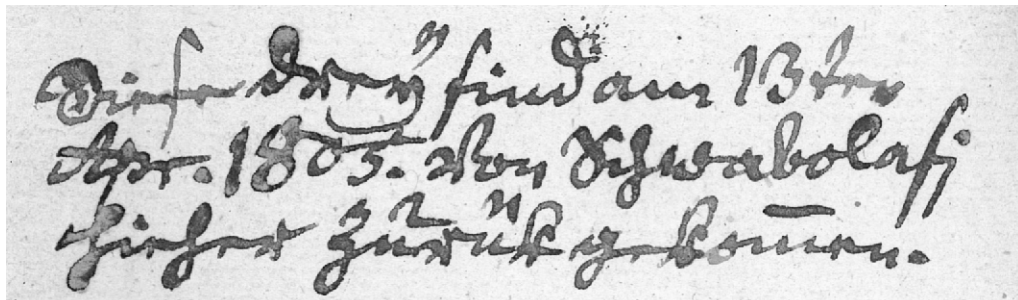 Diese dreÿ sind am 13ter
Apr. 1805. von Schwabolasi
hieher zurük gekom̅en.